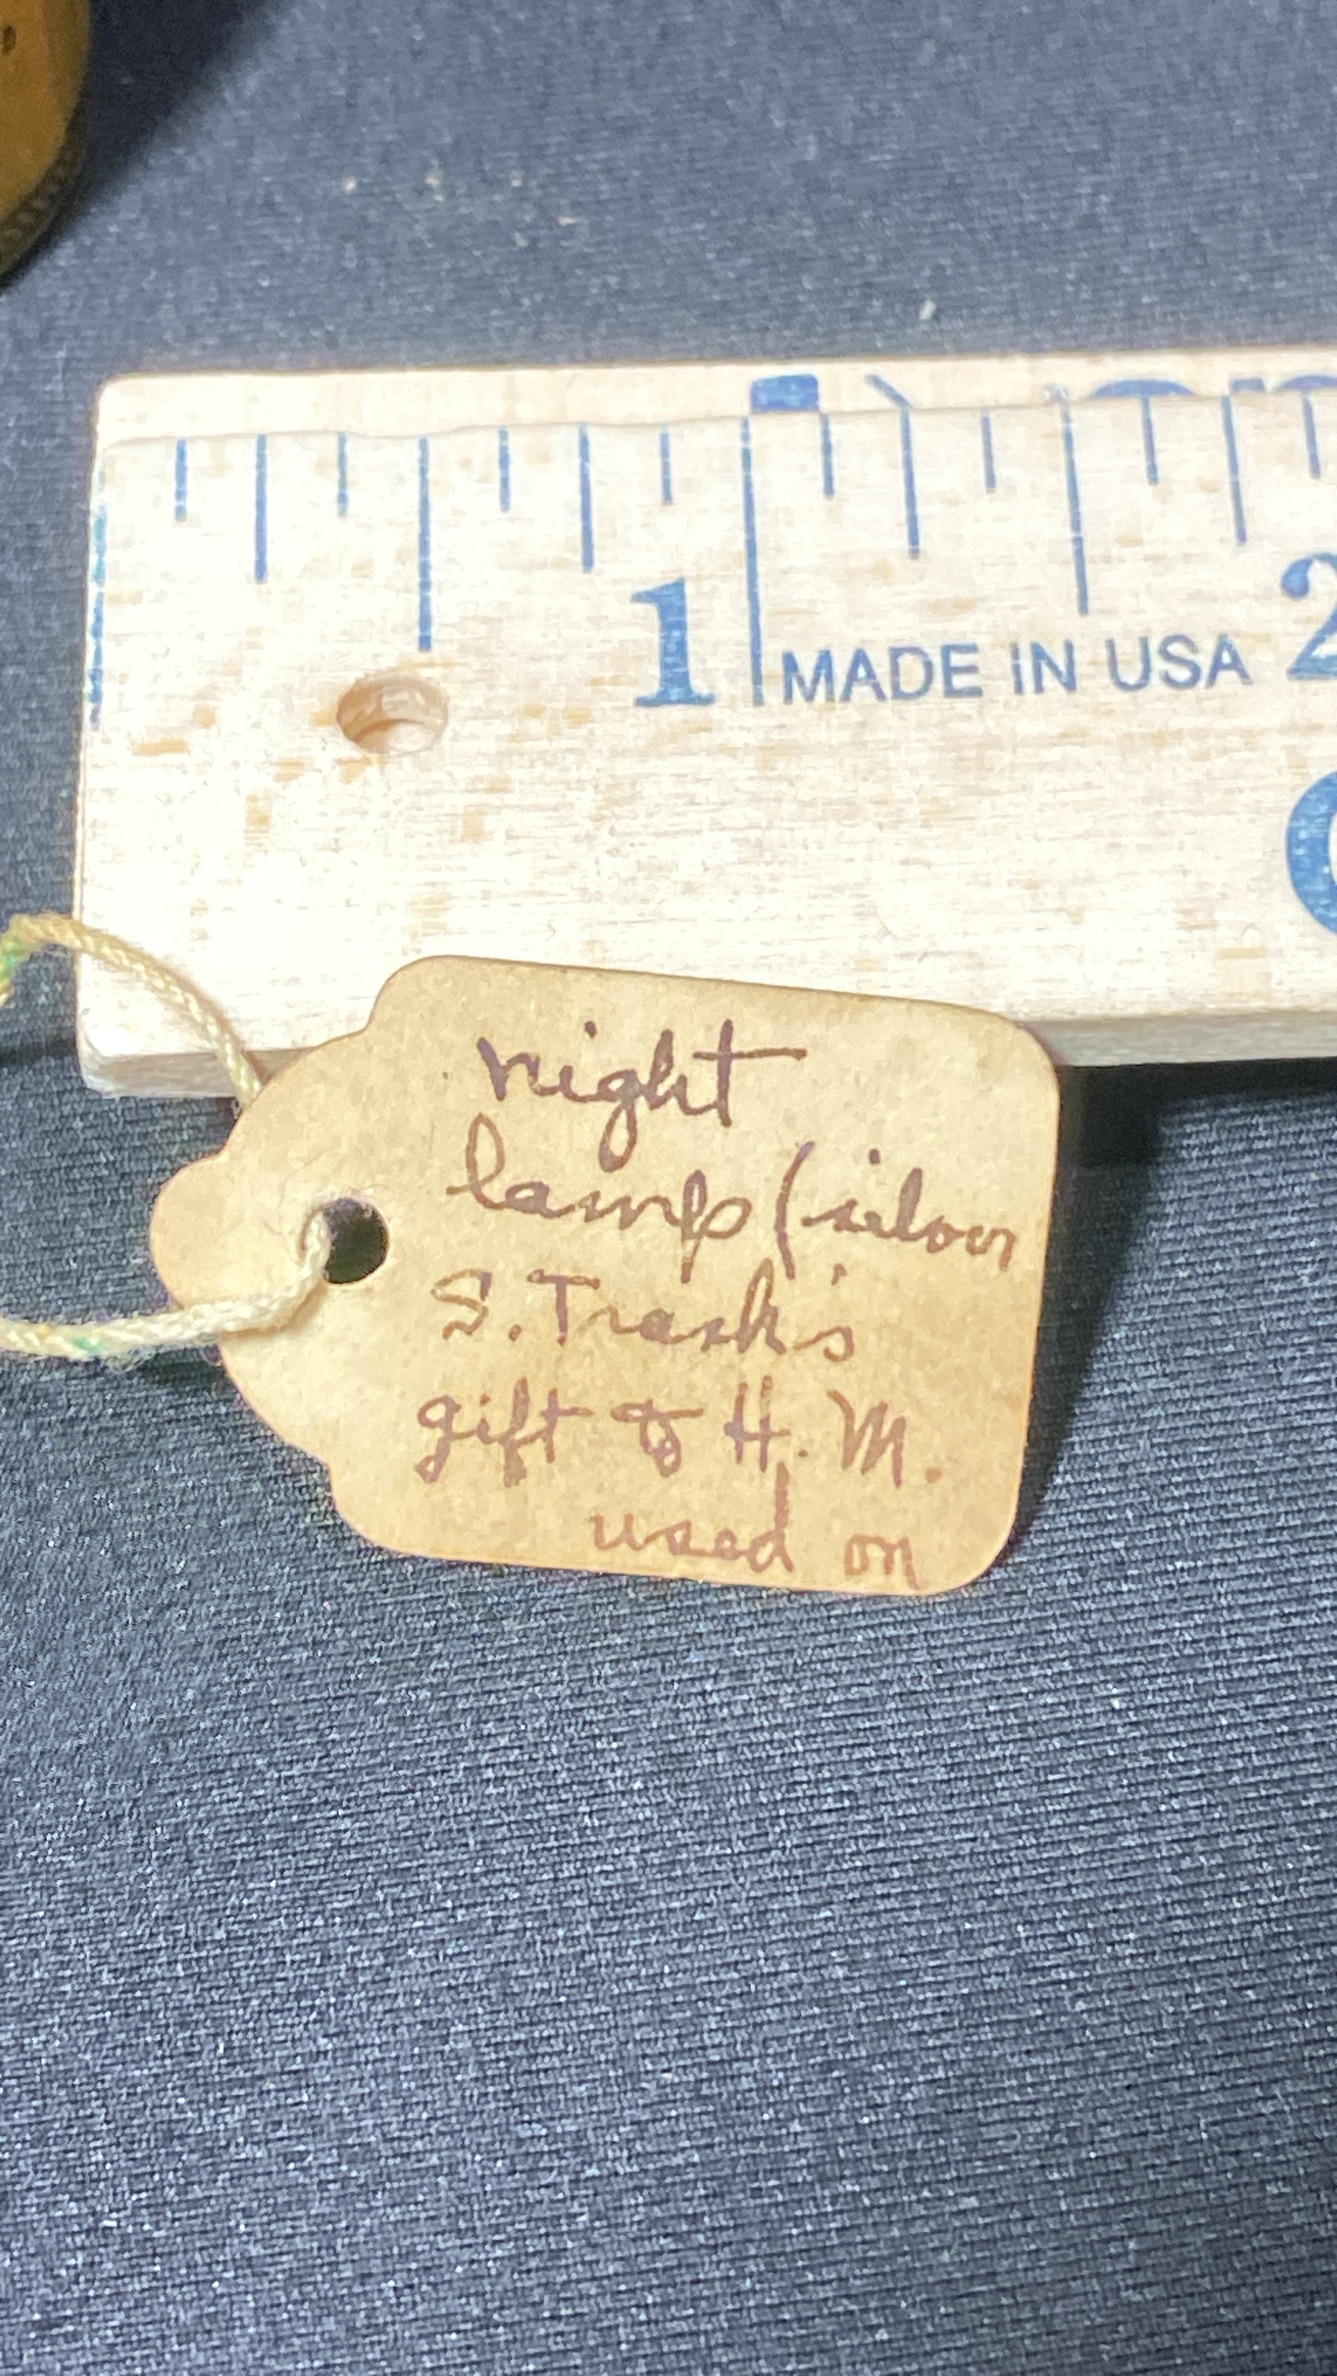 1 MADE IN USA 2
night
lamp (silver
S. Trash's
gift to H. M.
used on